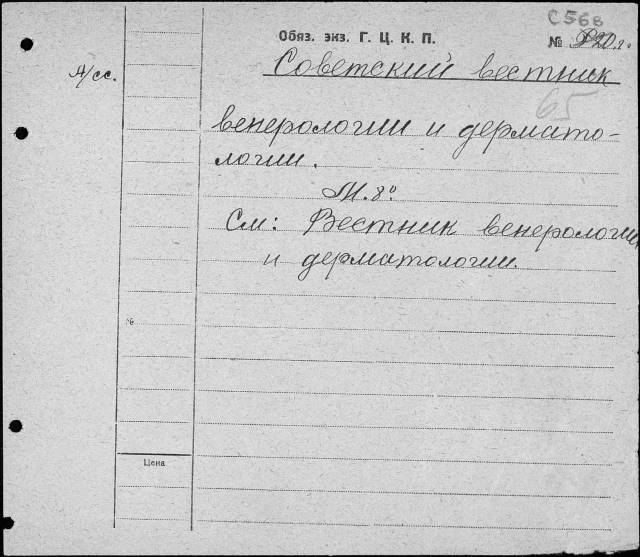 С 568
Обяз. экз. Г. Ц. К. П.
№
А/сс.
Советский вестник
65
венерологии и дермато-
логии.
М. 8º
См: Вестник венерологии
и дерматологии.
№
Цена